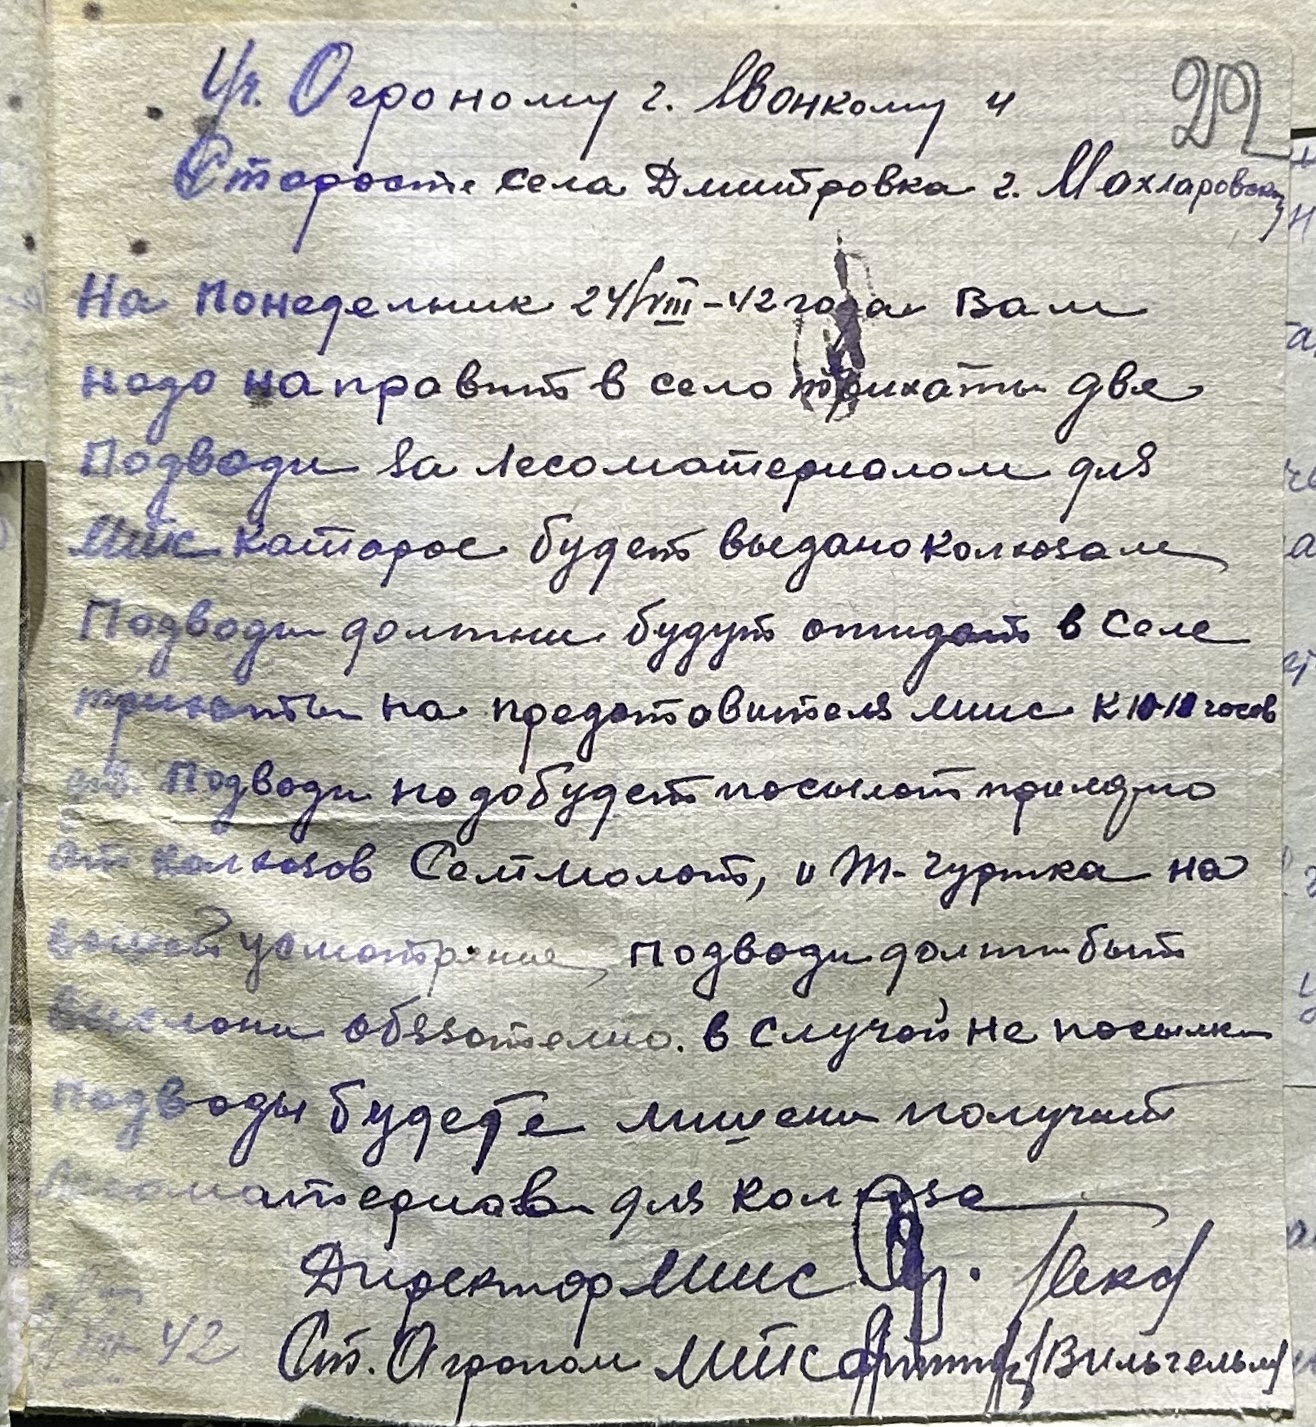 Уч. Огроному г. Явонкому и
29
Старосте села Дмитровка г. Махларовск
На понедельник 24/VIII-42 года Вам
надо направит в село трихаты две
Подводи за лесоматериалом для
МТС Каторое будет выдано колхозам
Подводи должни будут ожидат в Селе
трихоты на предстовителя МТС к 10-11 часов
Подводи надо будет посылат прямо
от колхозов Серпмолот, и Т-Чурпка на
вашей усмотрение, Подводи должн быт
высланы обязателно. в случай не посылки
подводы будете лишени получит
лесоматериа для колхоза
Директор МТС
42 Ст. Огроном МТС /Вильгельм/